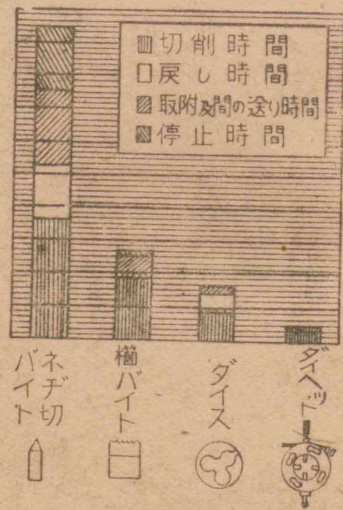 切削時間
戻し時間
取附及間の送り時間
停止時間
ネヂ切バイト
櫛バイト
ダイス
ダイヘット